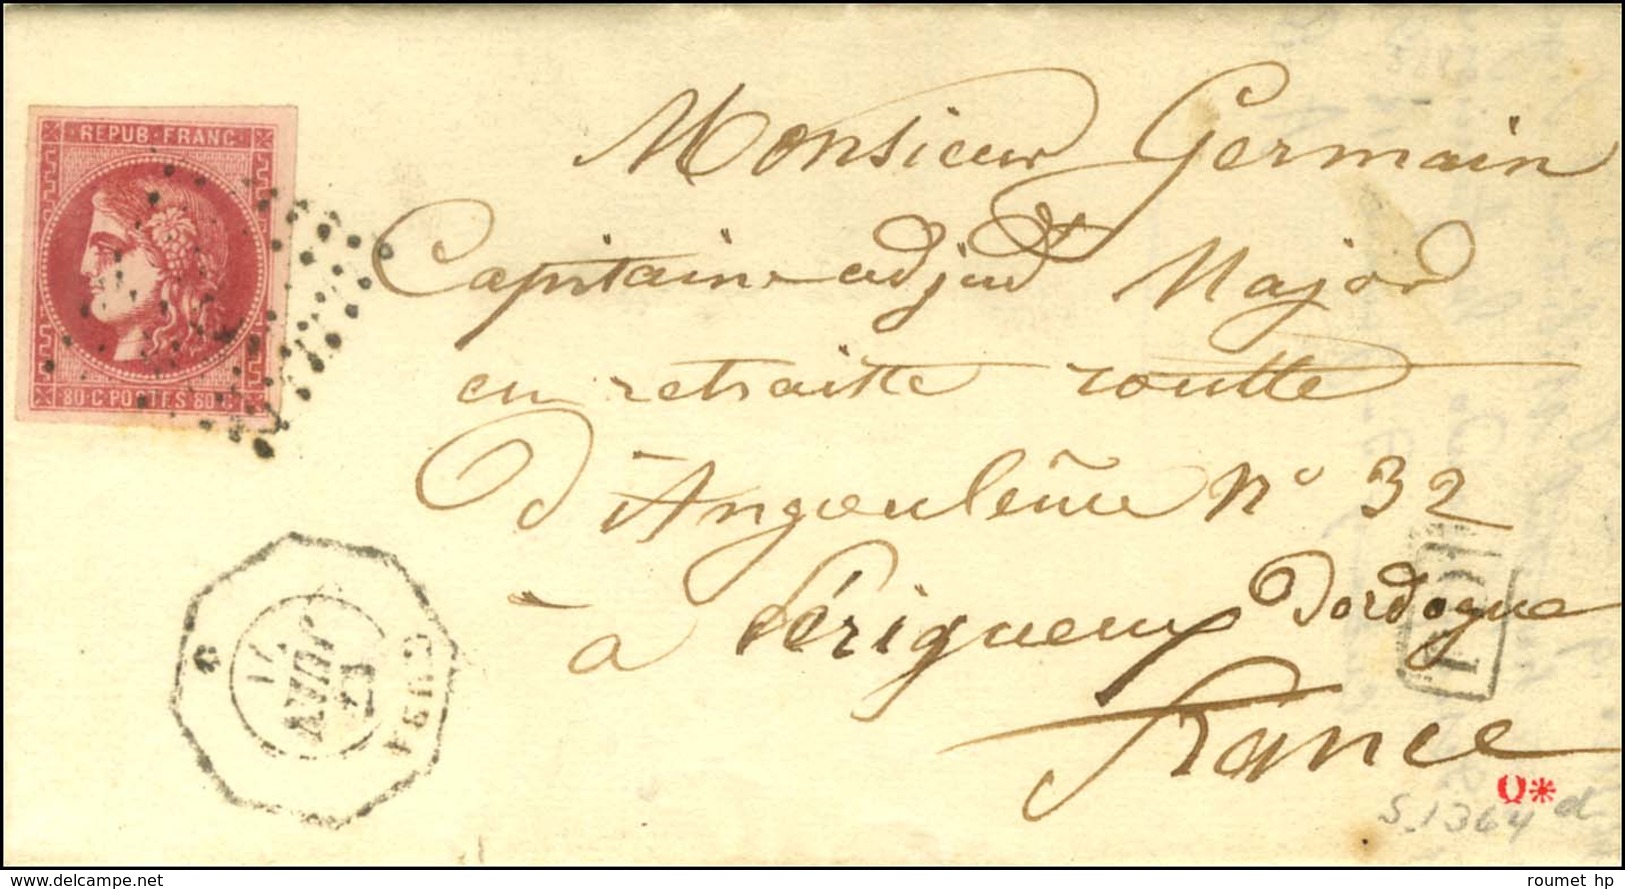 REPUB·FRANC
80·C·POSTES·80·C
Monsieur Germain
Capitaine adjud^t Major
en retraitte routte
D'Angoulême N° 32
à Périgueux Dordogne
France
PD
JUIN
71
S.1364 d
roumet hp